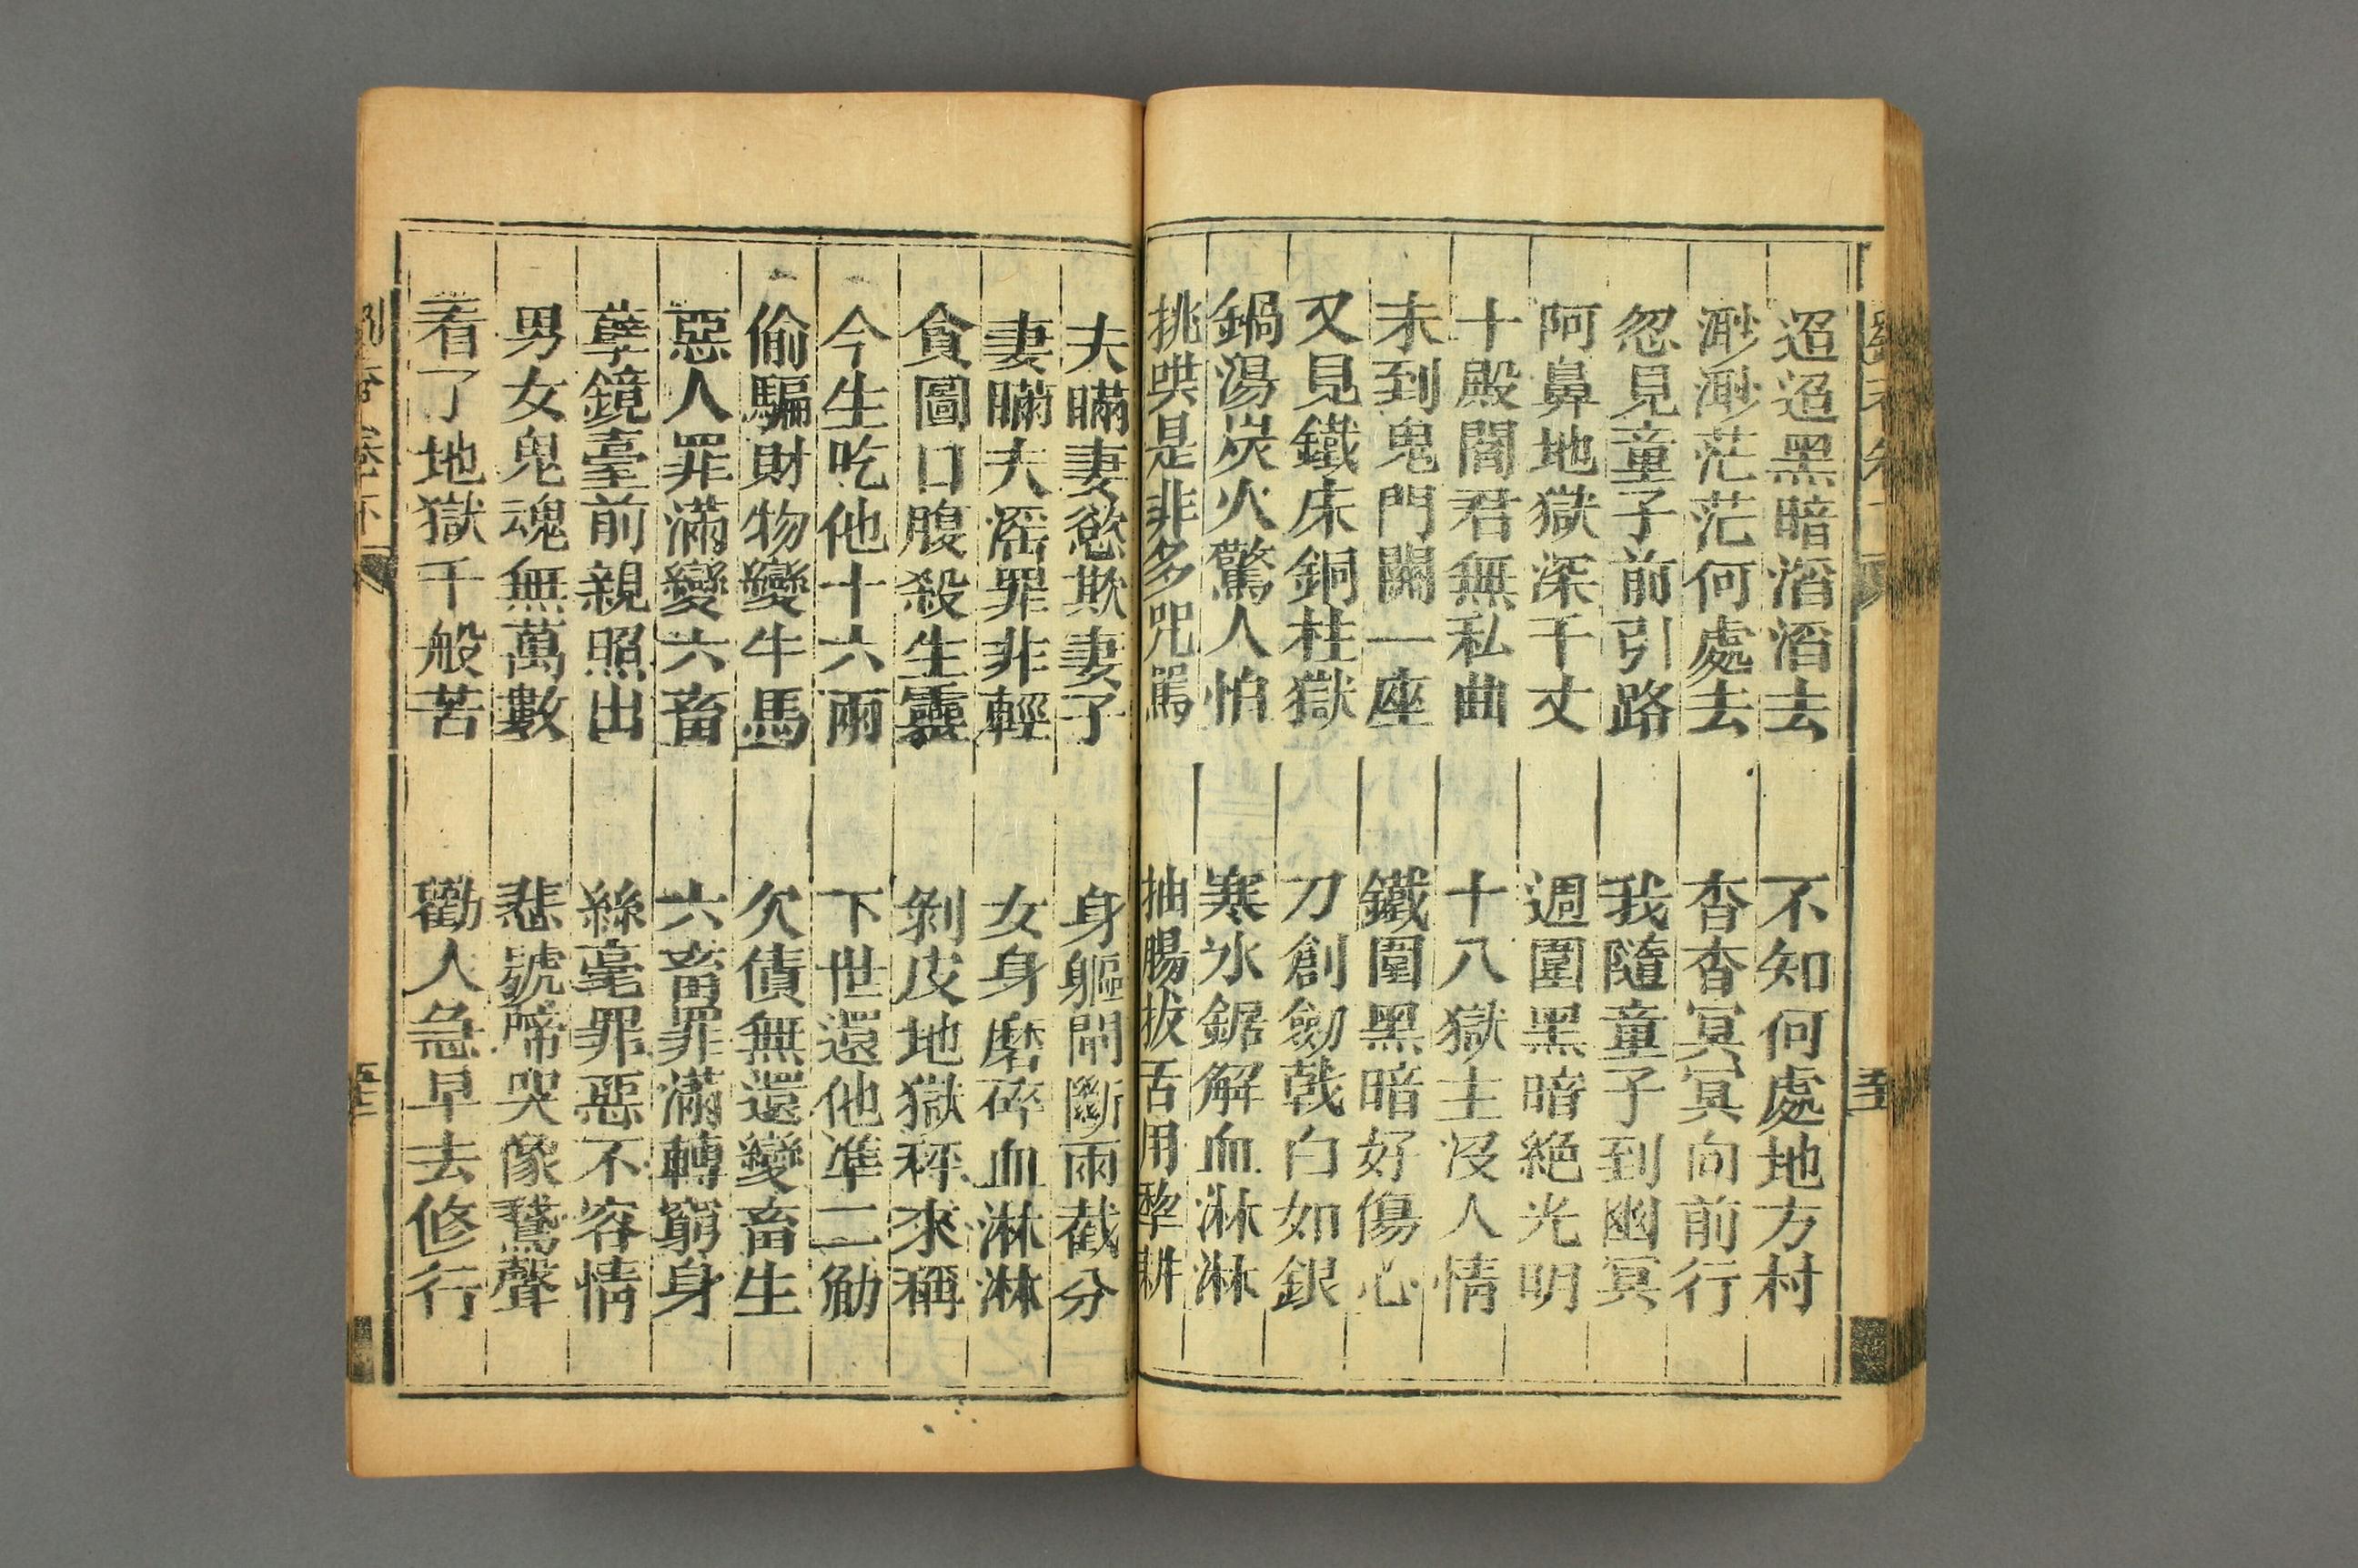 迢迢黑暗滔滔去　不知何處地方村
渺渺茫茫何處去　杳杳冥冥向前行
忽見童子前引路　我隨童子到幽冥
阿鼻地獄深千丈　週圍黑暗絕光明
十殿閻君無私曲　十八獄主沒人情
未到鬼門關一座　鐵圍黑暗好傷心
又見鐵床銅柱獄　刀創劔戟白如銀
鍋湯炭火驚人怕　寒氷鋸解血淋淋
挑哄是非多咒罵　抽腸拔舌用犂耕
夫瞞妻慾欺妻子　身軀閘斷兩截分
妻瞞夫滛罪非輕　女身磨碎血淋淋
貪圖口腹殺生靈　剝皮地獄秤來稱
今生吃他十六兩　下世還他凖二觔
偷騙財物變牛馬　欠債無還變畜生
惡人罪滿變六畜　六畜罪滿轉窮身
孽鏡臺前親照出　絲毫罪惡不容情
男女鬼魂無萬數　悲號啼哭像鵞聲
看了地獄千般苦　勸人急早去修行